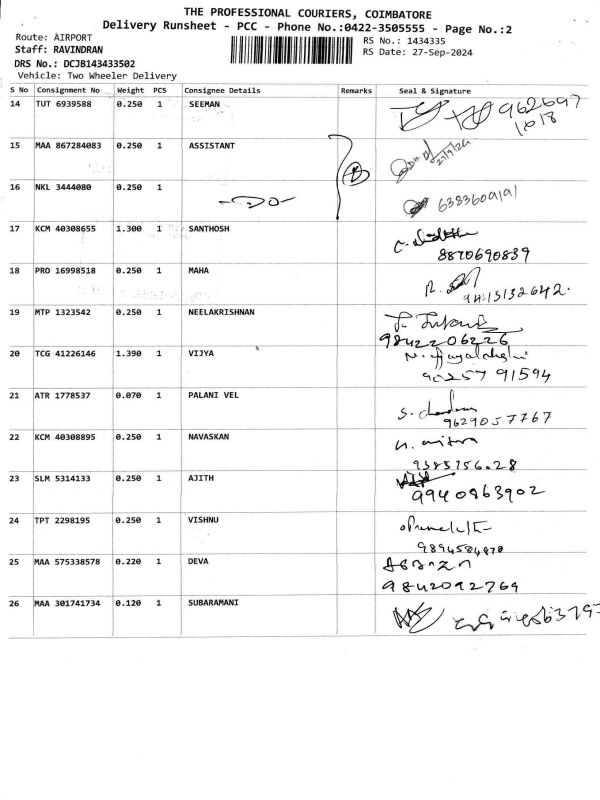 THE PROFESSIONAL COURIERS, COIMBATORE
Delivery Runsheet - PCC - Phone No.:0422-3505555 - Page No.:2
Route: AIRPORT
RS No.: 1434335
Staff: RAVINDRAN
RS Date: 27-Sep-2024
DRS No.: DCJB143433502
Vehicle: Two Wheeler Delivery
S No Consignment No Weight PCS Consignee Details Remarks Seal & Signature
14 TUT 6939588 0.250 1 SEEMAN
15 MAA 867284083 0.250 1 ASSISTANT
16 NKL 3444080 0.250 1 -DO- 6383609191
17 KCM 40308655 1.300 1 SANTHOSH
8870690839
18 PRO 16998518 0.250 1 MAHA
19 MTP 1323542 0.250 1 NEELAKRISHNAN
9842206226
20 TCG 41226146 1.390 1 VIJYA
90257 91594
21 ATR 1778537 0.070 1 PALANI VEL
9629057767
22 KCM 40308895 0.250 1 NAVASKAN
23 SLM 5314133 0.250 1 AJITH
9940863902
24 TPT 2298195 0.250 1 VISHNU
9894584870
25 MAA 575338578 0.220 1 DEVA
9842092769
26 MAA 301741734 0.120 1 SUBARAMANI